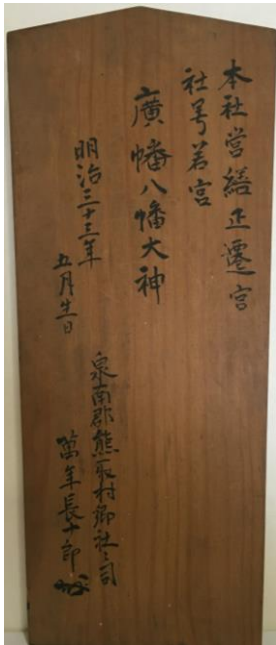 本社営繕正遷宮
社号若宮
廣幡八幡大神
明治三十三年
五月廿一日
泉南郡熊取村郷社々司
萬年長十郎